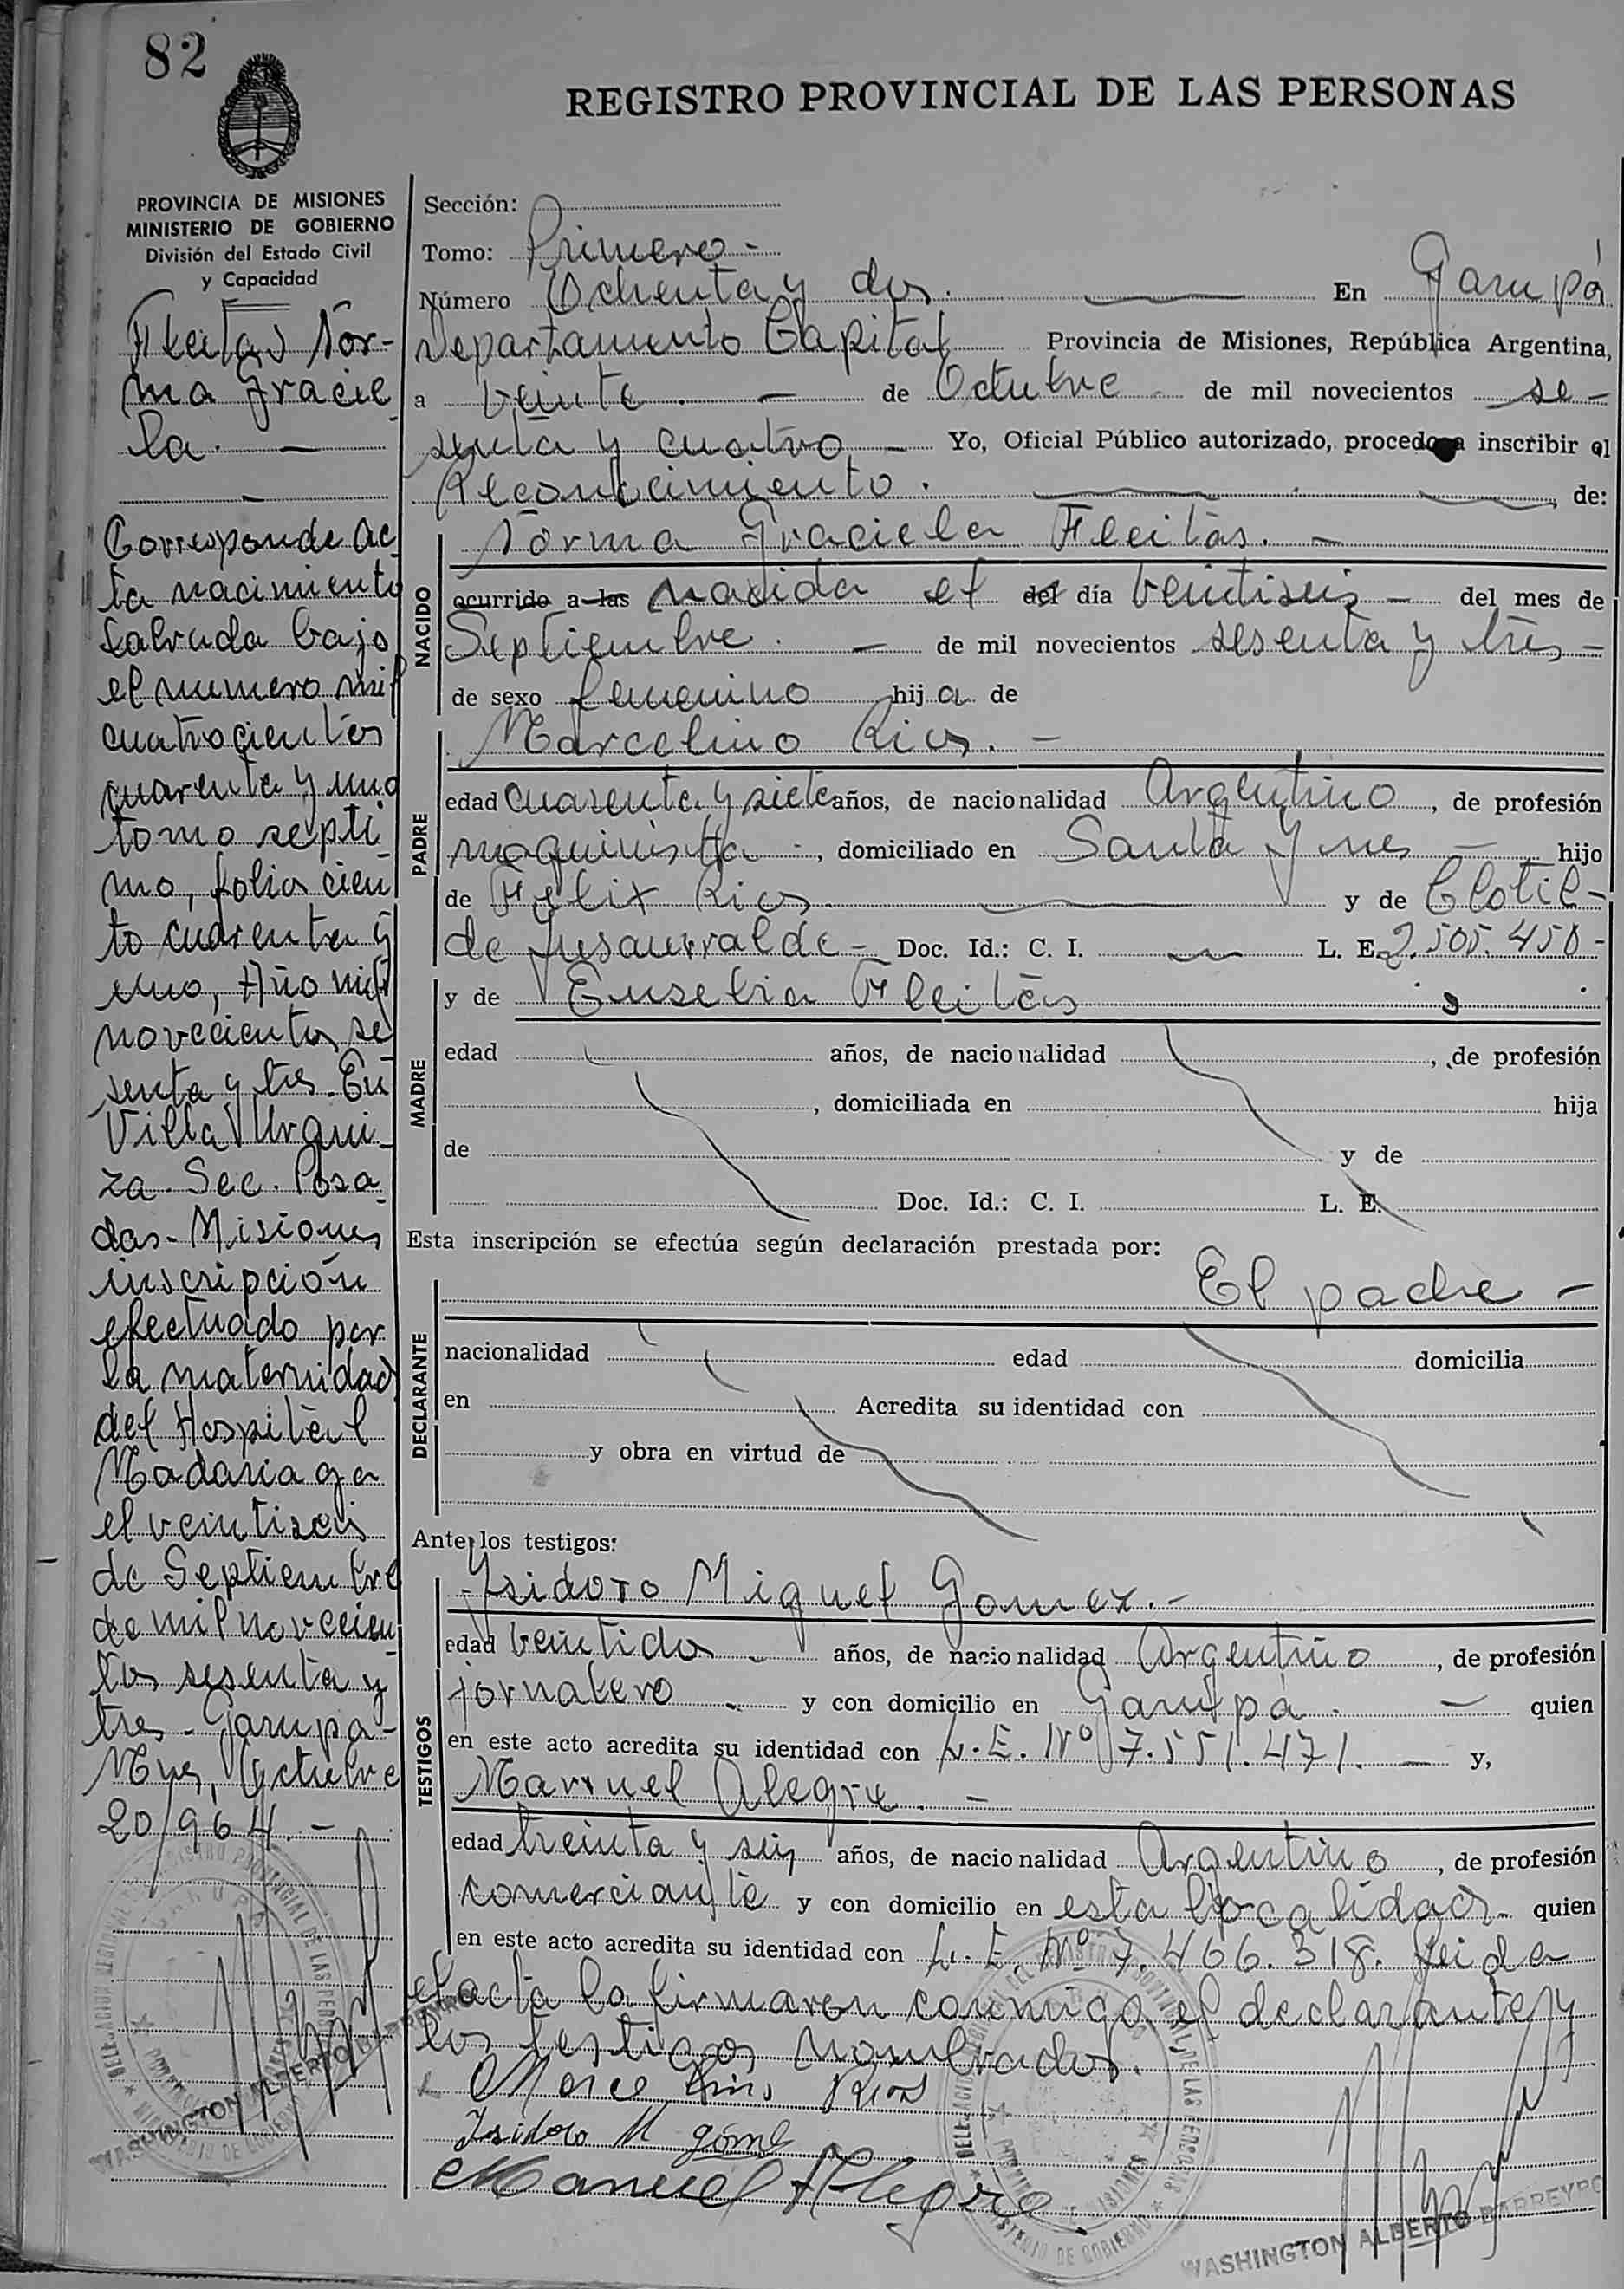 82
REGISTRO PROVINCIAL DE LAS PERSONAS
PROVINCIA DE MISIONES
MINISTERIO DE GOBIERNO
División del Estado Civil
y Capacidad
Fleitas Nor-
ma Gracie
la. —
Corresponde Ac
ta nacimiento
labrada bajo
el numero mil
cuatrocientos
cuarenta y uno
tomo septi
mo, folio cien
to cuarenta y
uno, Año mil
novecientos se
senta y tres. En
Villa Urqui-
za. Sec. Posa
das - Misiones
inscripción
efectuado por
la maternidad
del Hospital
Madariaga
el veintiseis
de Septiembre
de mil novecien
tos sesenta y
tres - Garupa-
Mnes, Octubre
20/964. -
Sección:
Tomo: Primero -
Número Ochenta y dos. — En Garupá
Departamento Capital Provincia de Misiones, República Argentina,
a veinte. — de Octubre de mil novecientos se-
senta y cuatro — Yo, Oficial Público autorizado, procedo a inscribir el
Reconocimiento. — de:
NACIDO
Norma Graciela Fleitas. —
ocurrido a las nacida el del día veintiseis — del mes de
Septiembre. — de mil novecientos sesenta y tres —
de sexo femenino hija de
PADRE
Marcelino Rios. —
edad cuarenta y siete años, de nacionalidad Argentino, de profesión
maquinista -, domiciliado en Santa Ynes — hijo
de Felix Rios — y de Clotil-
de Insaurralde - Doc. Id.: C. I. — L. E. 2.505.450-
MADRE
y de Eusebia Fleitas
edad años, de nacionalidad , de profesión
, domiciliada en hija
de y de
Doc. Id.: C. I. L. E.
Esta inscripción se efectúa según declaración prestada por:
El padre —
DECLARANTE
nacionalidad edad domicilia
en Acredita su identidad con
y obra en virtud de
Ante los testigos:
TESTIGOS
Ysidoro Miguel Gomez. -
edad veintidos - años, de nacionalidad Argentino, de profesión
jornalero - y con domicilio en Garupá. — quien
en este acto acredita su identidad con L. E. Nº 7.551.471. — y,
Manuel Alegre. —
edad treinta y seis años, de nacionalidad Argentino, de profesión
comerciante y con domicilio en esta localidad - quien
en este acto acredita su identidad con L. E. Nº 7.466.318. Leida
el acta la firmaron conmigo el declarante y
los testigos nombrados.
Marcelino Rios
Isidoro M gome
Manuel Alegre
WASHINGTON ALBERTO BARREYRO
WASHINGTON ALBERTO BARREYRO